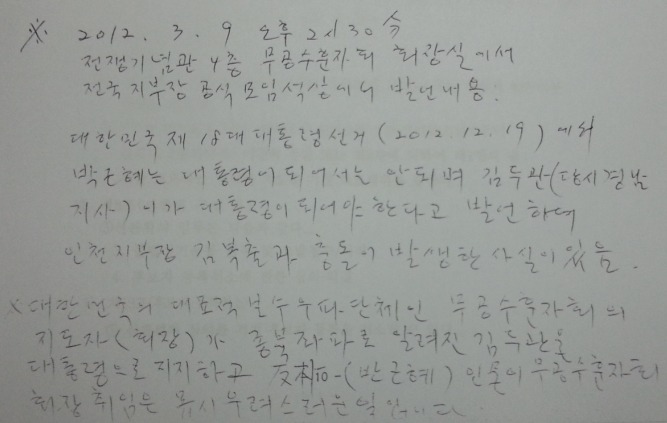 ※ 2012. 3. 9 오후 2시30분
전쟁기념관 4층 무공수훈자회 회장실에서
전국지부장 공식모임석상에서 발언내용.
대한민국 제 18대 대통령선거 (2012.12.19) 에서
박근혜는 대통령이 되어서는 안되며 김두관(당시경남
지사) 이가 대통령이 되어야 한다고 발언하여
인천지부장 김복출과 충돌이 발생한 사실이 있음.
※ 대한민국의 대표적 보수우파단체인 무공수훈자회의
지도자(회장)가 종북좌파로 알려진 김두관을
대통령으로 지지하고 (반근혜) 인물이 무공수훈자회
회장 취임은 부려스러운일입니다.